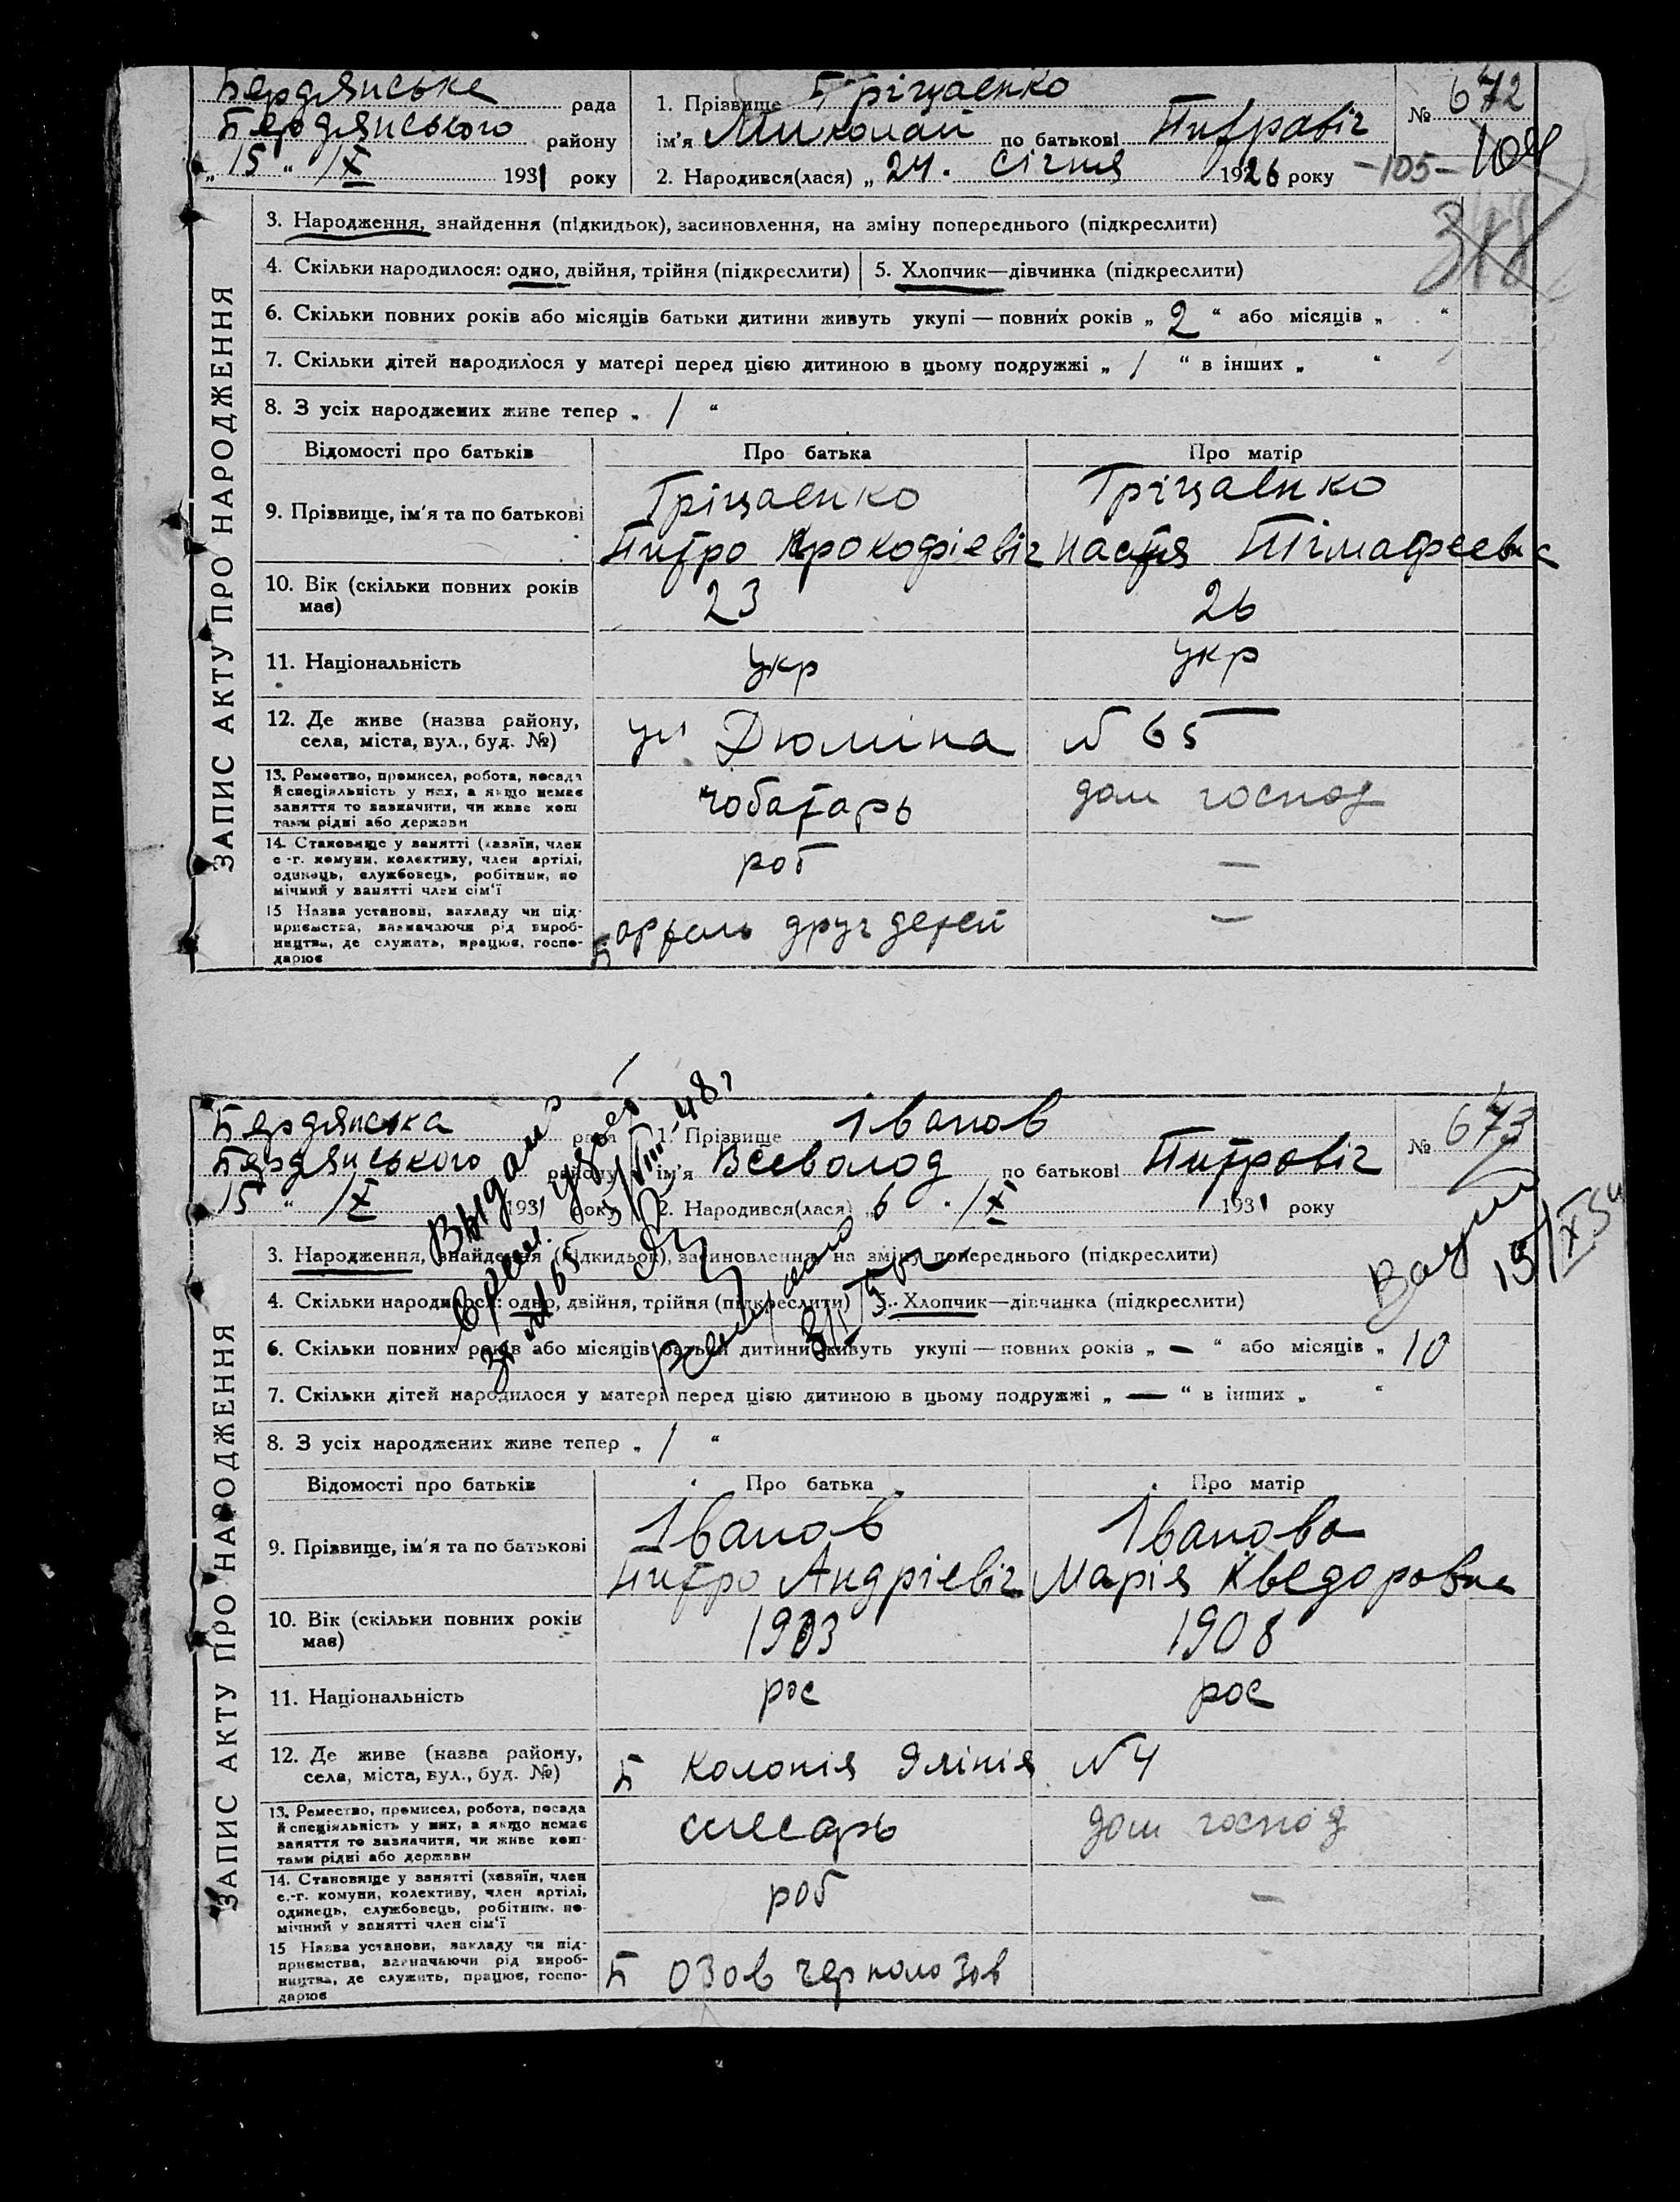 Бердянське рада
Бердянського району
„ 15 “ IX 1931 року
1. Прізвище Гріцаенко
ім'я Миколай по батькові Питровіч
2. Народився(лася) „ 24. січня 1926 року
№ 672
-105- 104
318
ЗАПИС АКТУ ПРО НАРОДЖЕННЯ
3. Народження, знайдення (підкидьок), засиновлення, на зміну попереднього (підкреслити)
4. Скільки народилося: одно, двійня, трійня (підкреслити) 5. Хлопчик—дівчинка (підкреслити)
6. Скільки повних років або місяців батьки дитини живуть укупі — повних років „ 2 “ або місяців „ “
7. Скільки дітей народилося у матері перед цією дитиною в цьому подружжі „ / “ в інших „ “
8. З усіх народжених живе тепер „ / “
Відомості про батьків Про батька Про матір
9. Прізвище, ім'я та по батькові Гріцаенко Гріцаенко
Питро Прокофіевіч Настя Тімафеевна
10. Вік (скільки повних років має) 23 26
11. Національність укр укр
12. Де живе (назва району, села, міста, вул., буд. №) ул Дюміна № 65
13. Ремество, промисел, робота, посада й спеціяльність у них, а якщо немає заняття то зазначити, чи живе коштами рідні або держави чобатарь дом господ
14. Становище у занятті (хазяїн, член с.-г. комуни, колективу, член артілі, одинець, службовець, робітник, помічний у занятті член сім'ї роб —
15 Назва установи, закладу чи підприємства, зазначаючи рід виробництва, де служить, працює, господарює Б артель друг детей —
Бердянська рада
Бердянського району
15 “ IX 1931 року
1. Прізвище Іванов
ім'я Всеволод по батькові Питровіч
2. Народився(лася) „ 6 . IX 1931 року
№ 673
15/IX 54
Выдано
VIII-48 г
ЗАПИС АКТУ ПРО НАРОДЖЕННЯ
3. Народження, знайдення (підкидьок), засиновлення, на зміну попереднього (підкреслити)
4. Скільки народилося: одно, двійня, трійня (підкреслити) 5. Хлопчик—дівчинка (підкреслити)
6. Скільки повних років або місяців батьки дитини живуть укупі — повних років „ — “ або місяців „ 10
7. Скільки дітей народилося у матері перед цією дитиною в цьому подружжі „ — “ в інших „ “
8. З усіх народжених живе тепер „ / “
Відомості про батьків Про батька Про матір
9. Прізвище, ім'я та по батькові Іванов Іванова
Питро Андріевіч Марія Хведоровна
10. Вік (скільки повних років має) 1903 1908
11. Національність рос рос
12. Де живе (назва району, села, міста, вул., буд. №) Б Колонія Элінія № 4
13. Ремество, промисел, робота, посада й спеціяльність у них, а якщо немає заняття то зазначити, чи живе коштами рідні або держави слесарь дом господ
14. Становище у занятті (хазяїн, член с.-г. комуни, колективу, член артілі, одинець, службовець, робітник, помічний у занятті член сім'ї роб —
15 Назва установи, закладу чи підприємства, зазначаючи рід виробництва, де служить, працює, господарює Б Озов черноло зов